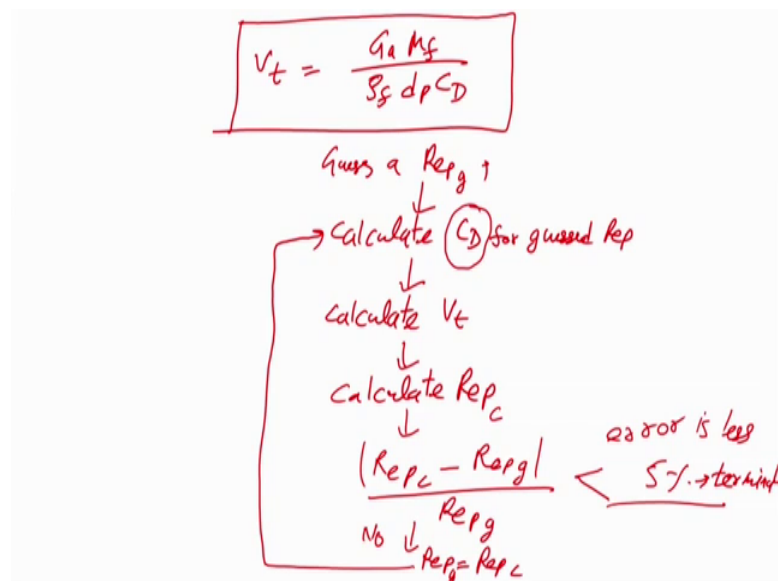 V_t = Ga μ_f / ρ_f d_p C_D
Guess a Rep_g
Calculate C_D for guessed Rep
Calculate V_t
Calculate Rep_c
|Rep_c - Rep_g| / Rep_g <
error is less
5% → termin
No
Rep_g = Rep_c